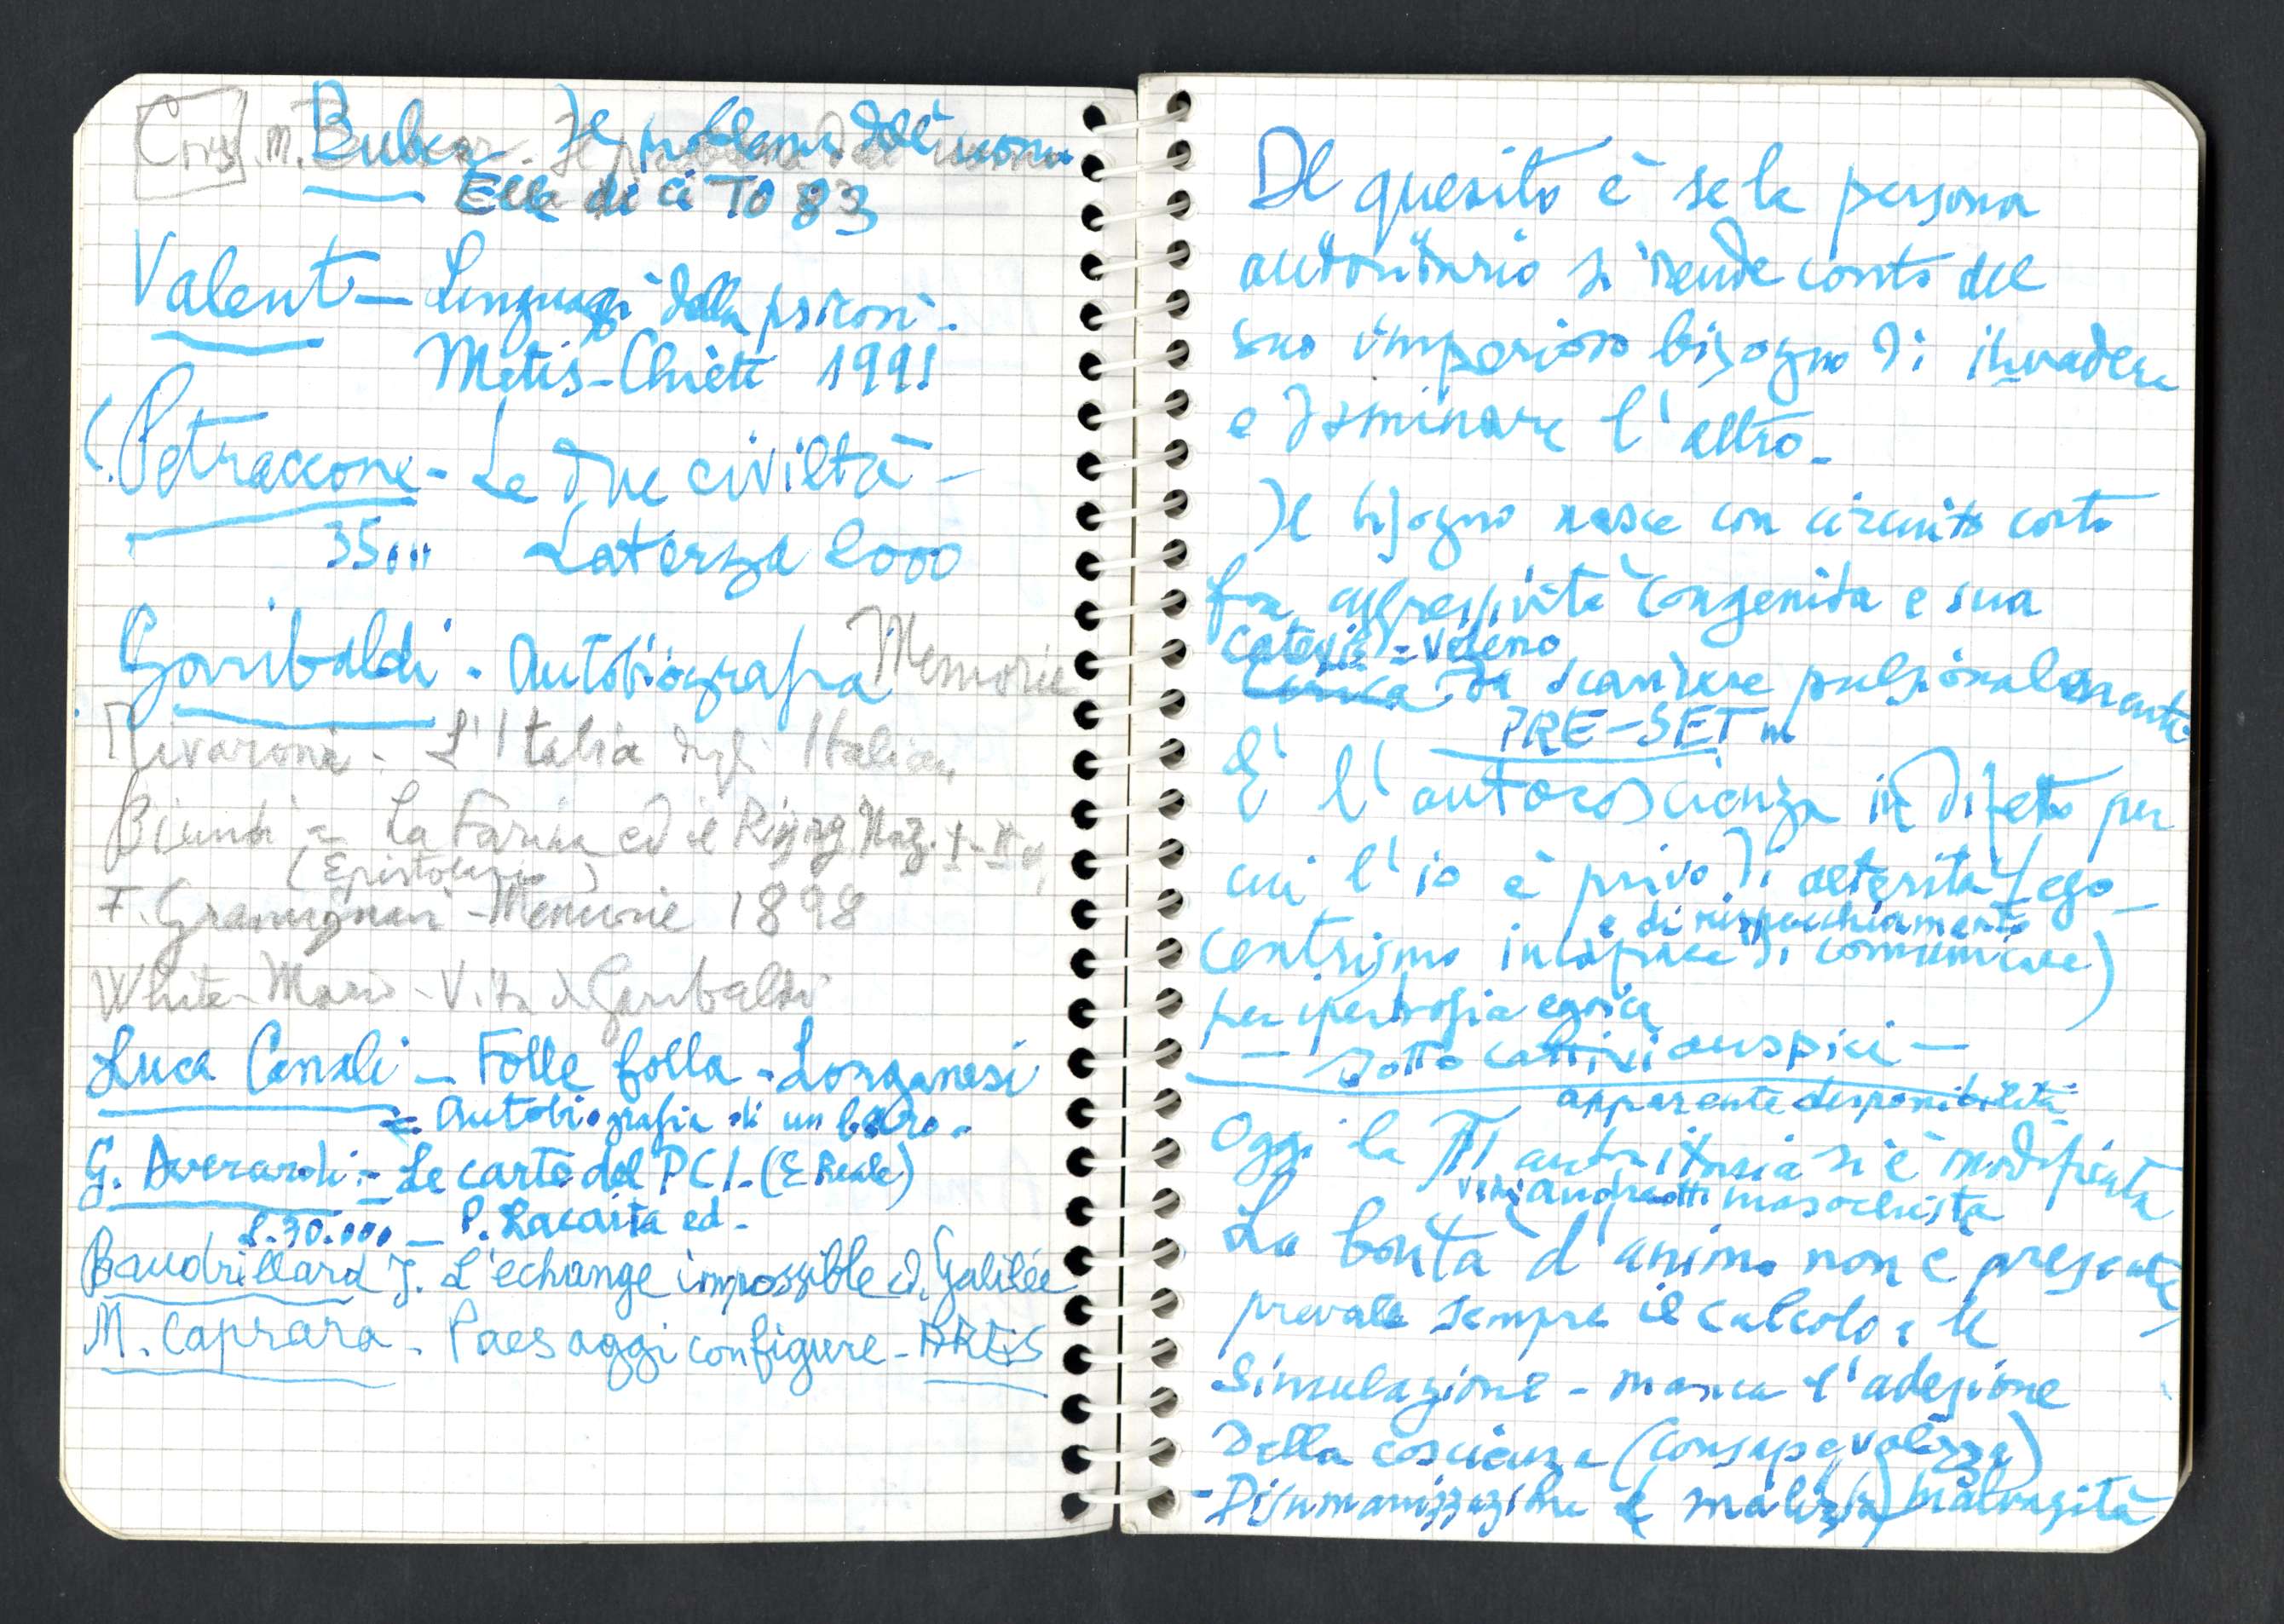 M. Buber. Il problema dell'uomo
Elle di ci TO 83
Valent - Linguaggi della psicosi -
Metis - Chieti 1991
(Petraccone - Le due civiltà -
35... Laterza 2000
Garibaldi - Autobiografia Memorie
- L'Italia degli Italiani
Biundi - La Farina ed il Risorg Naz. I-II v.
(Epistolario)
F. - Memorie 1898
White-Mario - Vita di Garibaldi
Luca Canali - Folle folla - Longanesi
= Autobiografia di un baro -
G. Averardi = Le carte del PCI - (E Reale)
L. 30.000 - P. Lacaita ed -
Baudrillard J. L'echange impossible ed. Galilée
M. Caprara - Paesaggi con figure - ARES
Il quesito è se la persona
autoritaria si rende conto del
suo imperioso bisogno di invadere
e dominare l'altro -
Il bisogno nasce con circuito corto
fra aggressività congenita e sua
= veleno
carica da scandere pulsionalmente
PRE-SET
E' l'autocoscienza in difetto per
cui l'io è privo di alterità (ego-
e di rispecchiamento
centrismo incapace di comunicare)
per ipertrofia egoica
- Sotto cattivi auspici -
apparente disponibilità
Oggi la autoritaria si è modificata
vedi andreotti masochista
La bontà d'animo non è presente
prevale sempre il calcolo e la
Simulazione - manca l'adesione
della coscienza (consapevolezza)
- Disumanizzazione e malizia) malvagità